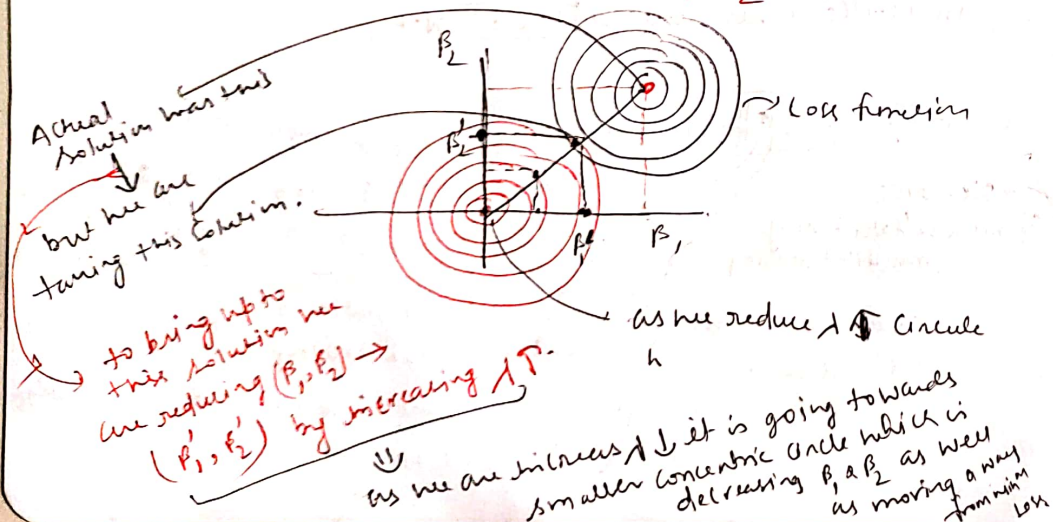 Actual
solution was this
but we are
taking this solution.
β₂
β₂'
β₁'
β₁
Loss function
as we reduce λ ⇑ Circule
h
to bring upto
this solution we
are reducing (β₁, β₂) →
(β₁', β₂') by increasing λ↑.
as we are increas λ↓ it is going towards
smaller concentric circle which is
decreasing β₁ & β₂ as well
as moving away
from minim
Loss